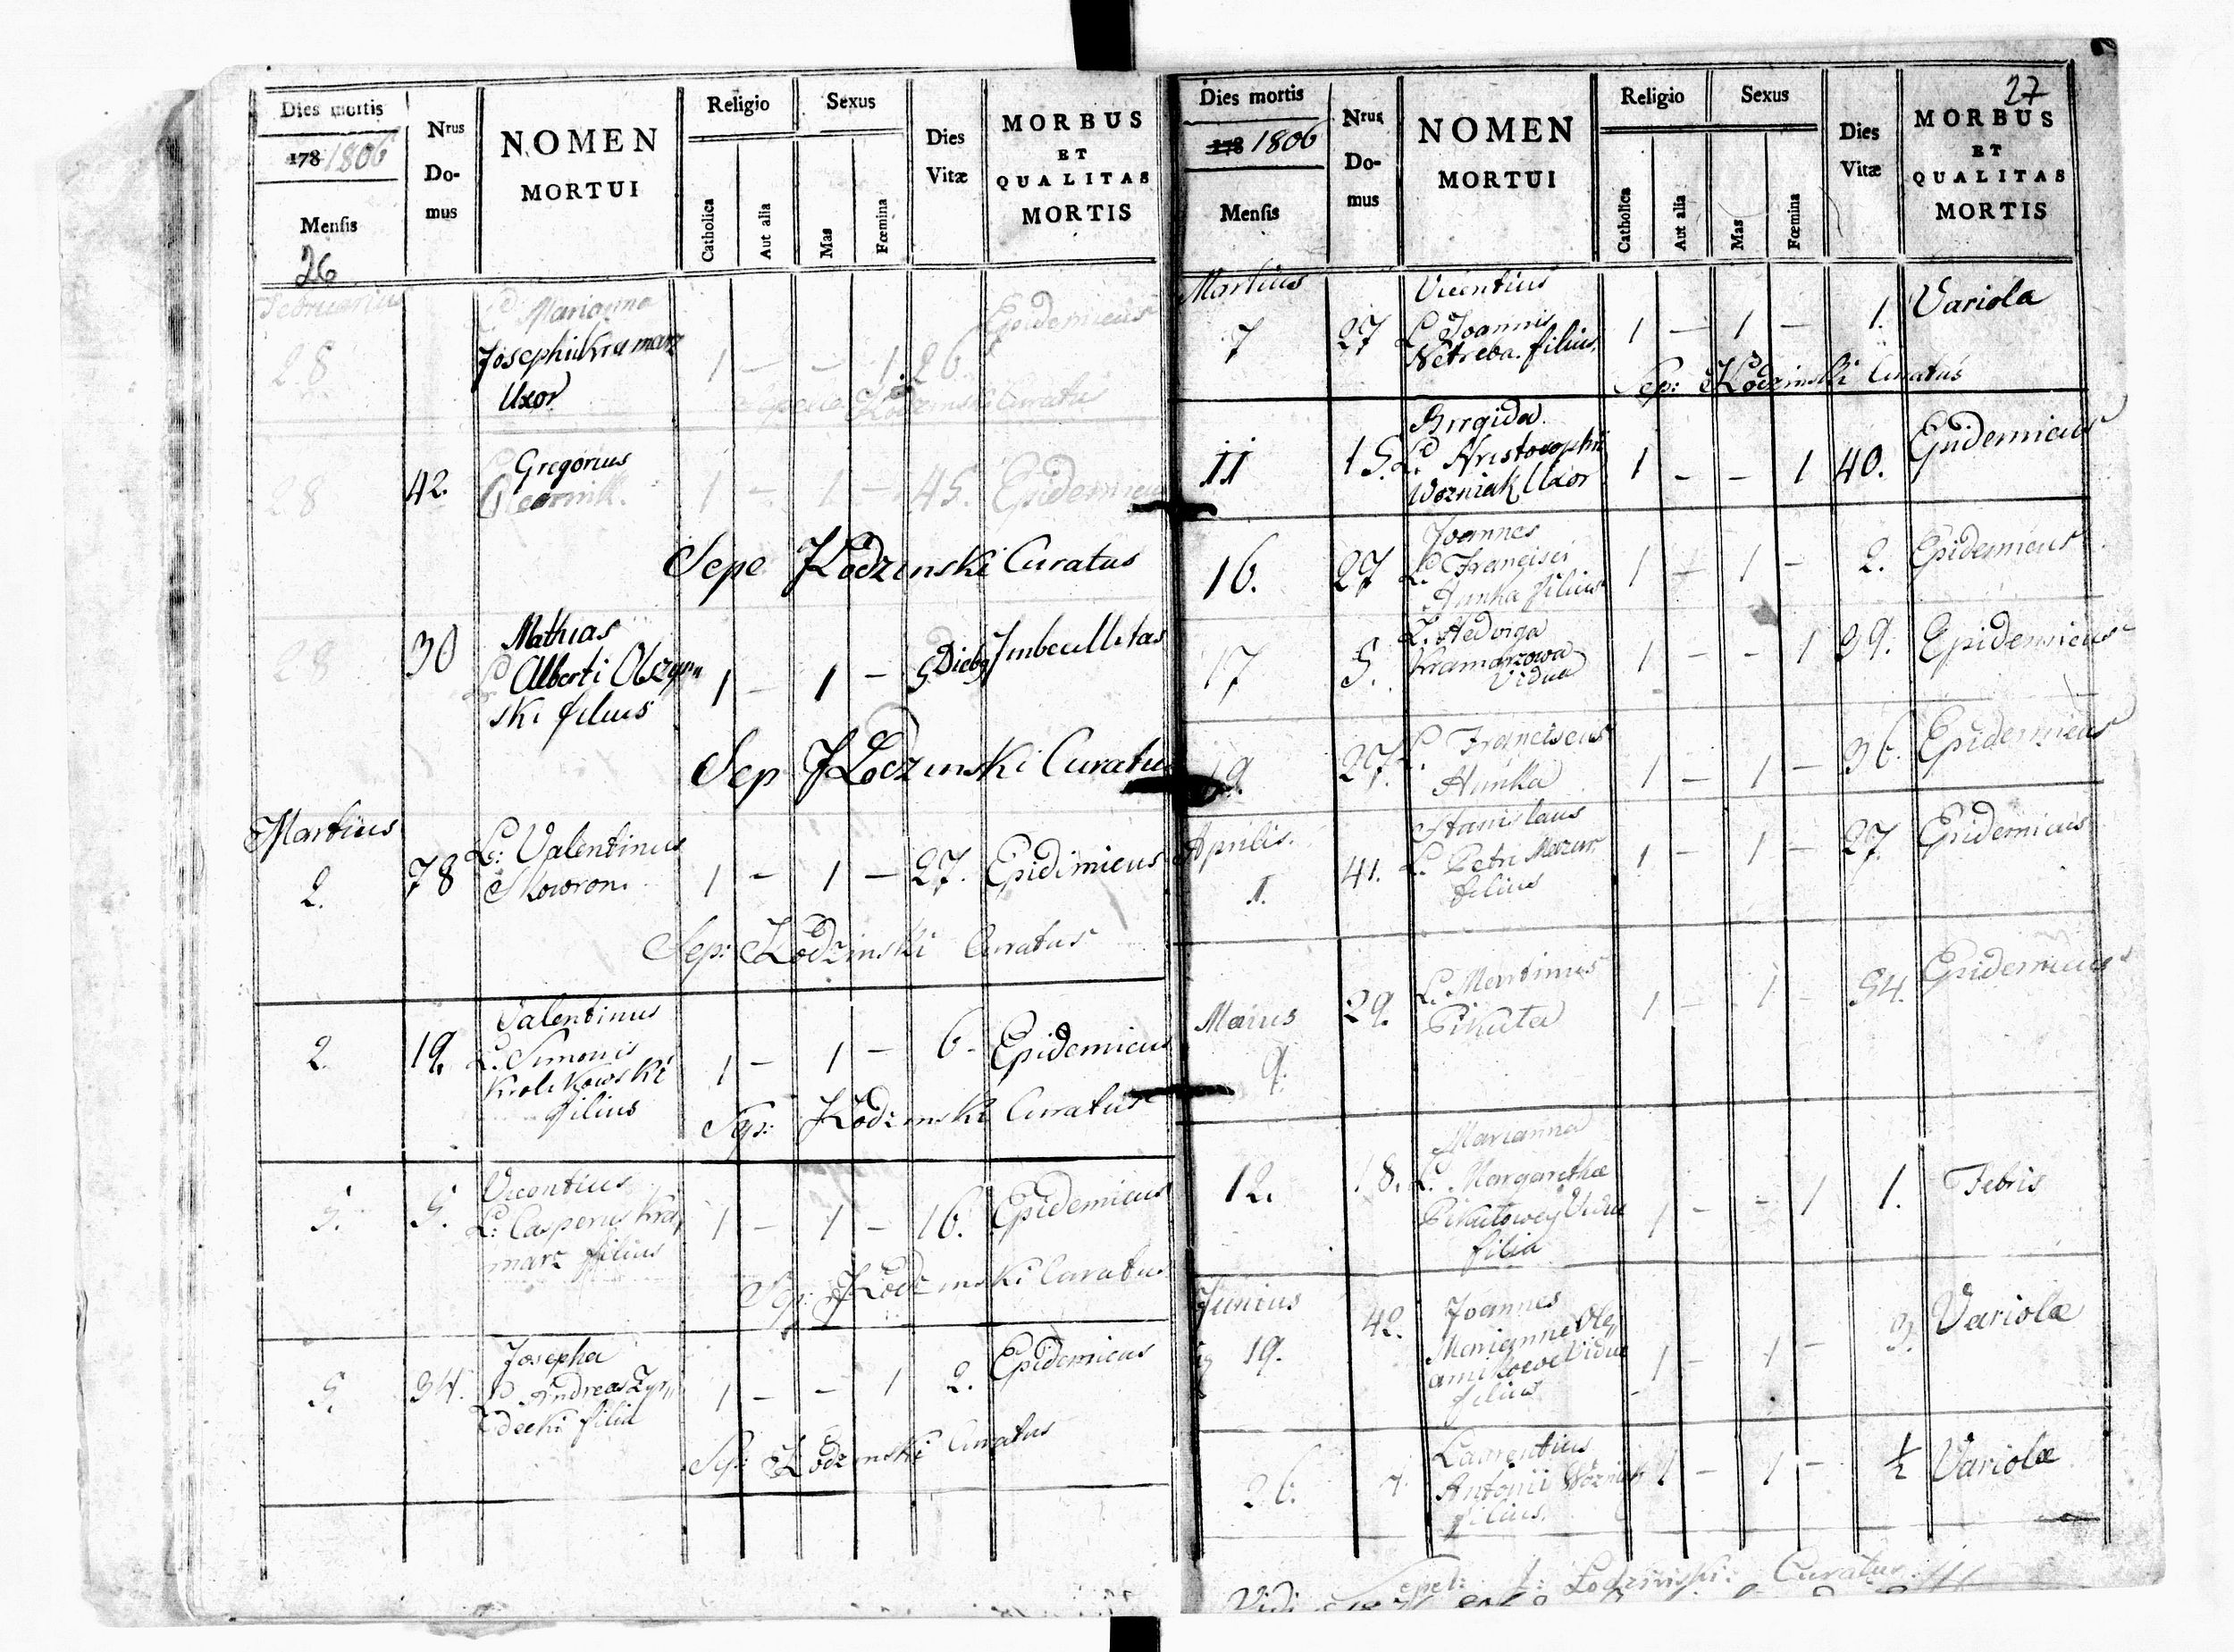 Dies mortis
178 1806
Mensis
26
Nrus
Do-
mus
NOMEN
MORTUI
Religio
Catholica
Aut alia
Sexus
Mas
Fœmina
Dies
Vitæ
MORBUS
ET
QUALITAS
MORTIS
Februarius
L: Marianna
Epidemicus
28
Josephi Kramarz
1 — — 1 26.
Uxor
Lodzinski Curatus
Gregorius
28 42.
1 — 1 — 45. Epidemicus
Sepe JLodzinski Curatus
28 30 Mathias
L Alberti Olszyn„ 1 — 1 — 5 Dieb Imbecillitas
ski filius
Sep JLodzinski Curatus
Martius
2. 78 L: Valentinus
Skowron 1 — 1 — 27. Epidimicus
Sep: JLodzinski Curatus
Valentinus
2. 19. L. Simonis 1 — 1 — 6 — Epidemicus
Krolikowski
filius
Sep: JLodzinski Curatus
Vicentius
5. 5. L: Casperus Kra„ 1 — 1 — 16. Epidemicus
marz filius
Sep: JLodzinski Curatus
Josepha
5. 34. L Andreas Zyr„ 1 — — 1 2. Epidemicus
decki filia
Sep: JLodzinski Curatus
27
Dies mortis
178 1806
Mensis
Nrus
Do-
mus
NOMEN
MORTUI
Religio
Catholica
Aut alia
Sexus
Mas
Fœmina
Dies
Vitæ
MORBUS
ET
QUALITAS
MORTIS
Martius
Vicentius
7 27 L Joannis 1 — 1 — 1. Variola
Netreba filius
Sep: JLodzinski Curatus
Brigida
11 15. L. Kristophri 1 — — 1 40. Epidemicus
Wozniak Uxor
Joannes
16. 27 L. Francisci 1 — 1 — 2. Epidemicus
Hunka filius
L. Hedviga
17 5. Kramarzowa 1 — — 1 39. Epidemicus
Vidua
19. 27. L. Franciscus
Hunka 1 — 1 — 36. Epidemicus
Aprilis.
Stanislaus
1. 41. L. Petri Mazur 1 — 1 — 27. Epidemicus
filius
Maius 29. L. Martinus 1 — 1 — 54. Epidemicus
9. Pikuta
Marianna
12. 18. L. Margarethæ
Pikutowey Viduæ 1 — — 1 1. Febris
filia
Junius
42. Joannes
19. Marianne Ole„ 1 — 1 — 3. Variolæ
Viduæ
filius
Laurentius
26. 7. Antonii Wozniak 1 — 1 — ½ Variolæ
filius.
Sepel: J: Lodzinski: Curatus
Vidi